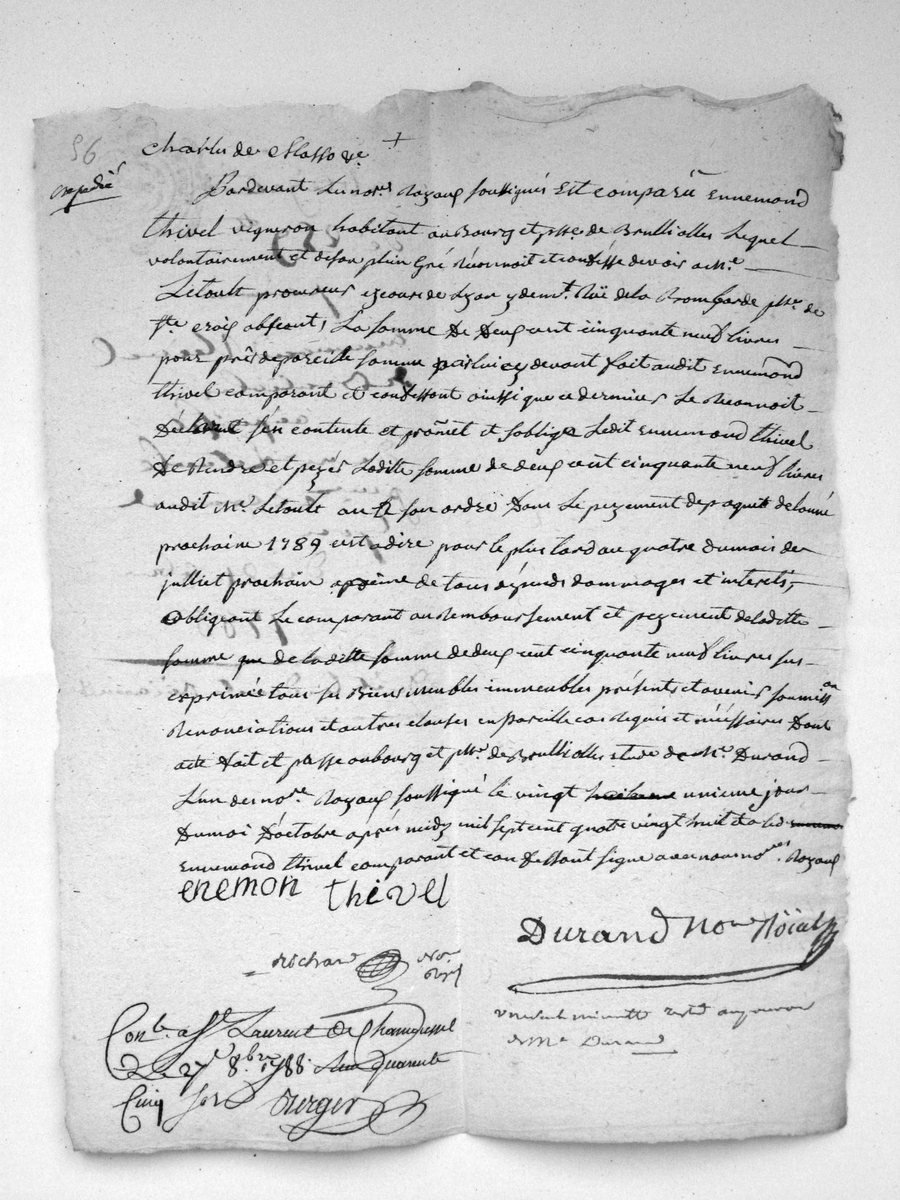 56
expedié
Charles de Classo ve +
Pardevant Les nores Royaux soussignés Est comparû Ennemond
thivel vigneron habitant au Bourg et psse de Brullialles Lequel
volontairement et de son plein Gré Reconnoit et confesse devoir a Me
Letoult procureur ez cours de Lyon y demt Rüe de la Bombarde psse de
ste croix absent, La somme De Deux cent cinquante neuf livres
pour prêt de pareille somme par lui cy devant fait audit Ennemond
thivel comparant et confessant ainssi que ce dernier Le Reconnoit
Déclarant s'en contente et promet et s'oblige Ledit Ennemond thivel
De Rendre et peÿer Laditte somme de deux cent cinquante neuf livres
audit Me Letoult ou a son ordre Dans Le peyement de paques de Lannée
prochaine 1789 cest a dire pour le plus tard au quatre du mois de
julliet prochain a peine de tous dépends dommages et interets,
obligeant Le comparant au Remboursement et peyement de laditte
somme que de laditte somme de deux cent cinquante neuf livres sus
exprimée tous ses Biens meubles immeubles présents et avenir soumisson
Renonciations et autres clauses en pareille cas Requis et nécéssaires Dont
acte fait et passe au bourg et psse de Brullialles etude de Me Durand
L'un des nore Royaux soussigné le vingt unieme jour
Du moi D'octobre après midy mil sept cent quatre vingt huit et a led
Ennemond thivel comparant et confessant signe avec nous nores Royaux
enemon thivel
Durand Nore Röial
Richard Nre Royl
Conle a Ste Laurent de Chamousset
Le 27e 8bre 1788. Reçu Quarante
Cinq sols Berger
minutte resté au pouvoir
de Me Durand